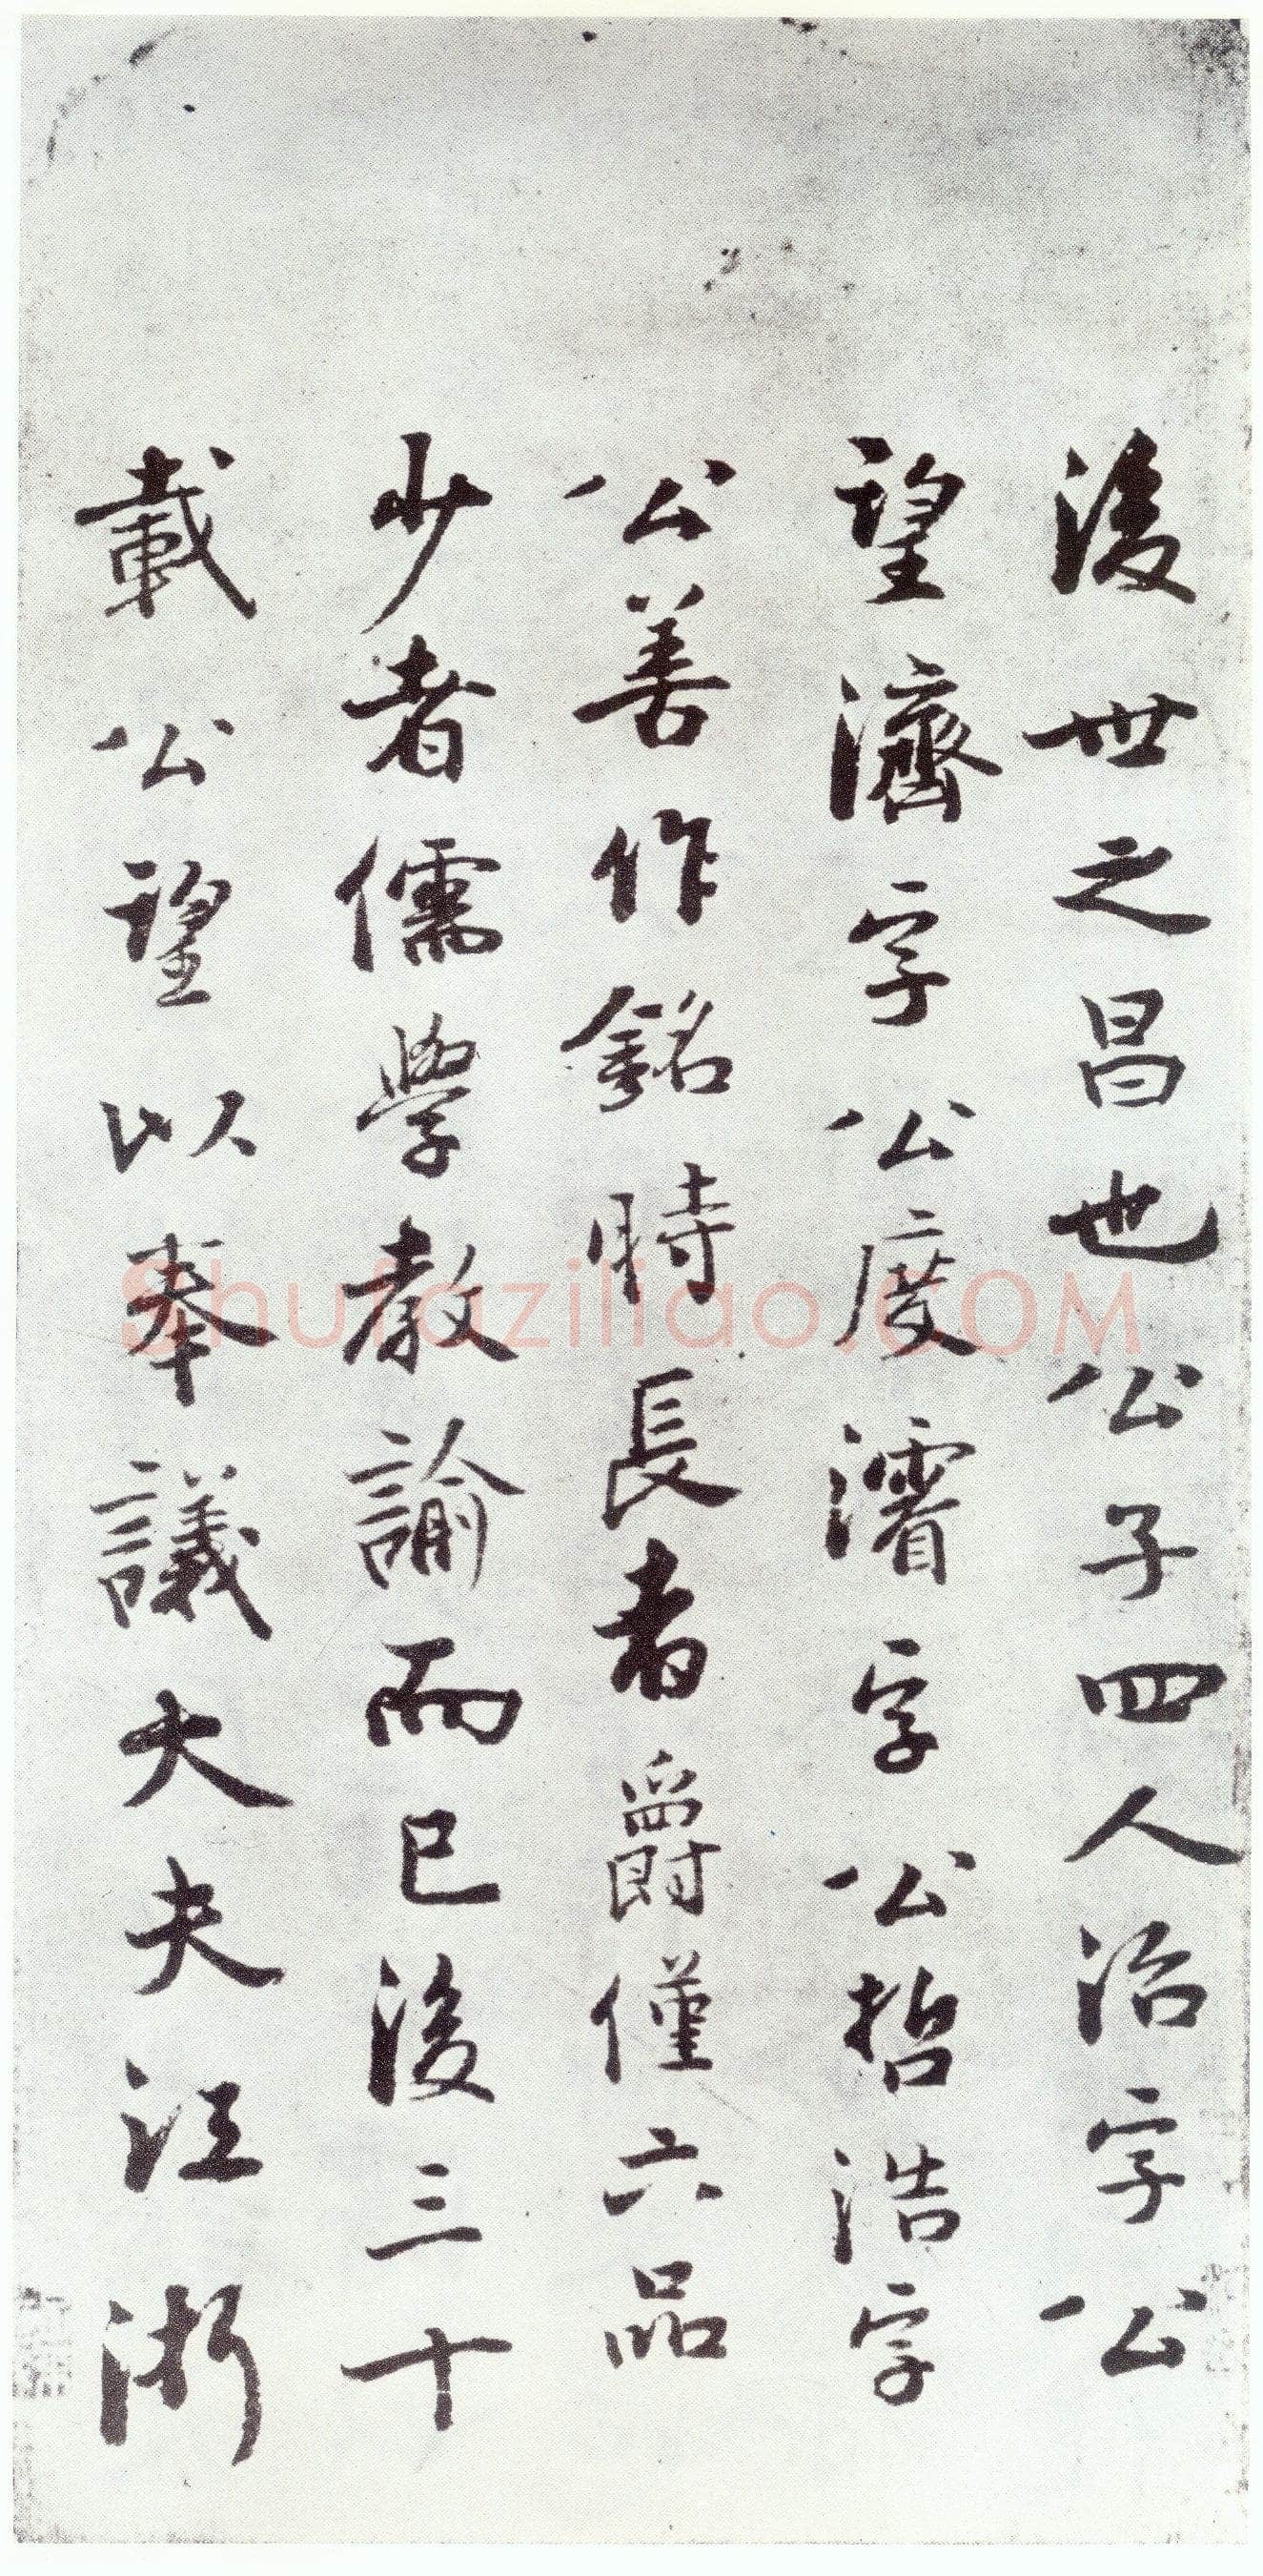 後世之昌也公子四人治字公
望濟字公度濬字公哲浩字
公善作銘時長者爵僅六品
少者儒學教諭而已後三十
載公望以奉議大夫江浙
Shufaziliao.COM